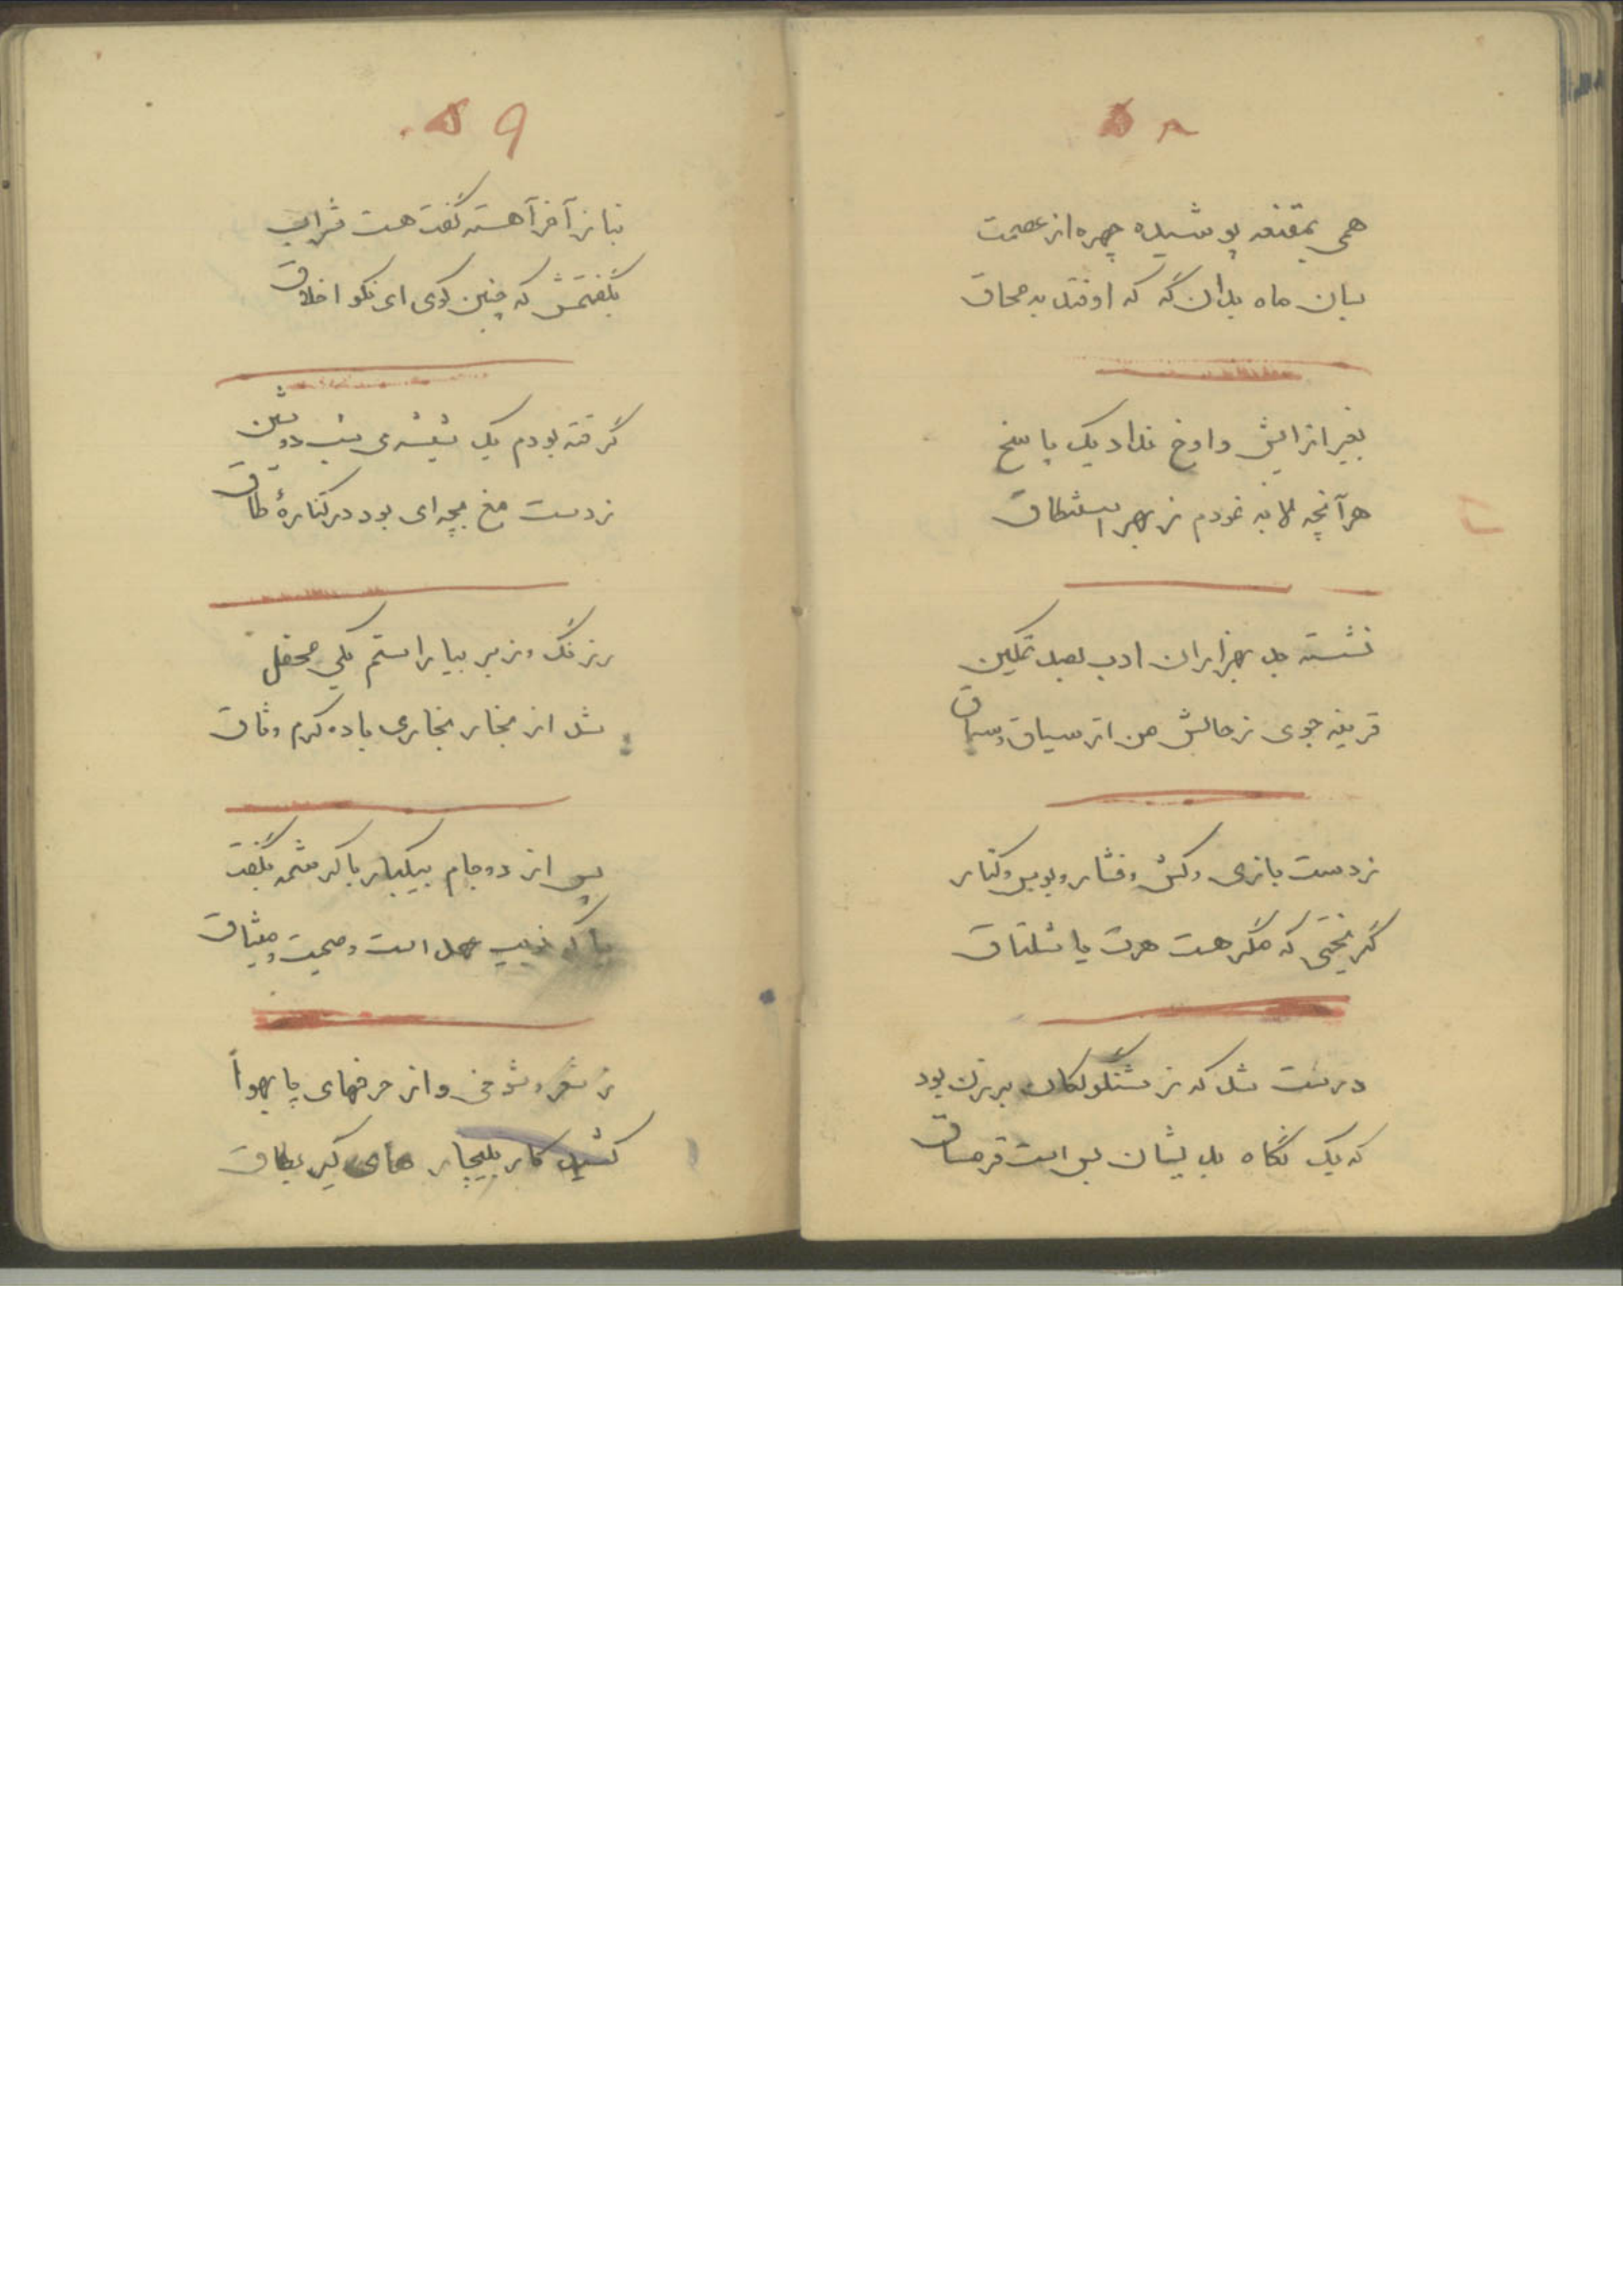 ۵۸
همی بمقنعه پوشیده چهره از عصمت
بسان ماه بدان گه که اوفتد به محاق
بغیر از ایش و اوخ نداد یک پاسخ
هر آنچه لابه نمودم ز بهر استنطاق
نشسته بد بهزاران ادب بصد تمکین
قرینه جوی ز حالش من از سیاق و سباق
ز دست بازی و کش و فشار و بوس و کنار
گریختی که مگر هست هرت یا شلتاق
درست شد که ز شنگولکان برزن بود
که یک نگاه بدیشان بس است قرمساق
۵۹
بناز آخر آهسته گفت هست شراب
بگفتمش که چنین گوی ای نکو اخلاق
گرفته بودم یک شیشه‌ی شب دوشین
ز دست مغ بچه‌ای بود در کنارهٔ طاق
رنگ و زیر بیاراستم یکی محفل
شد از بخار بخاری باده گرم وثاق
پس از دو جام بیکبار با کرشمه بگفت
عهد است و صحبت و میثاق
ز شعر و شوخی و از حرفهای پا بهوا
کشید کار بلیچار های